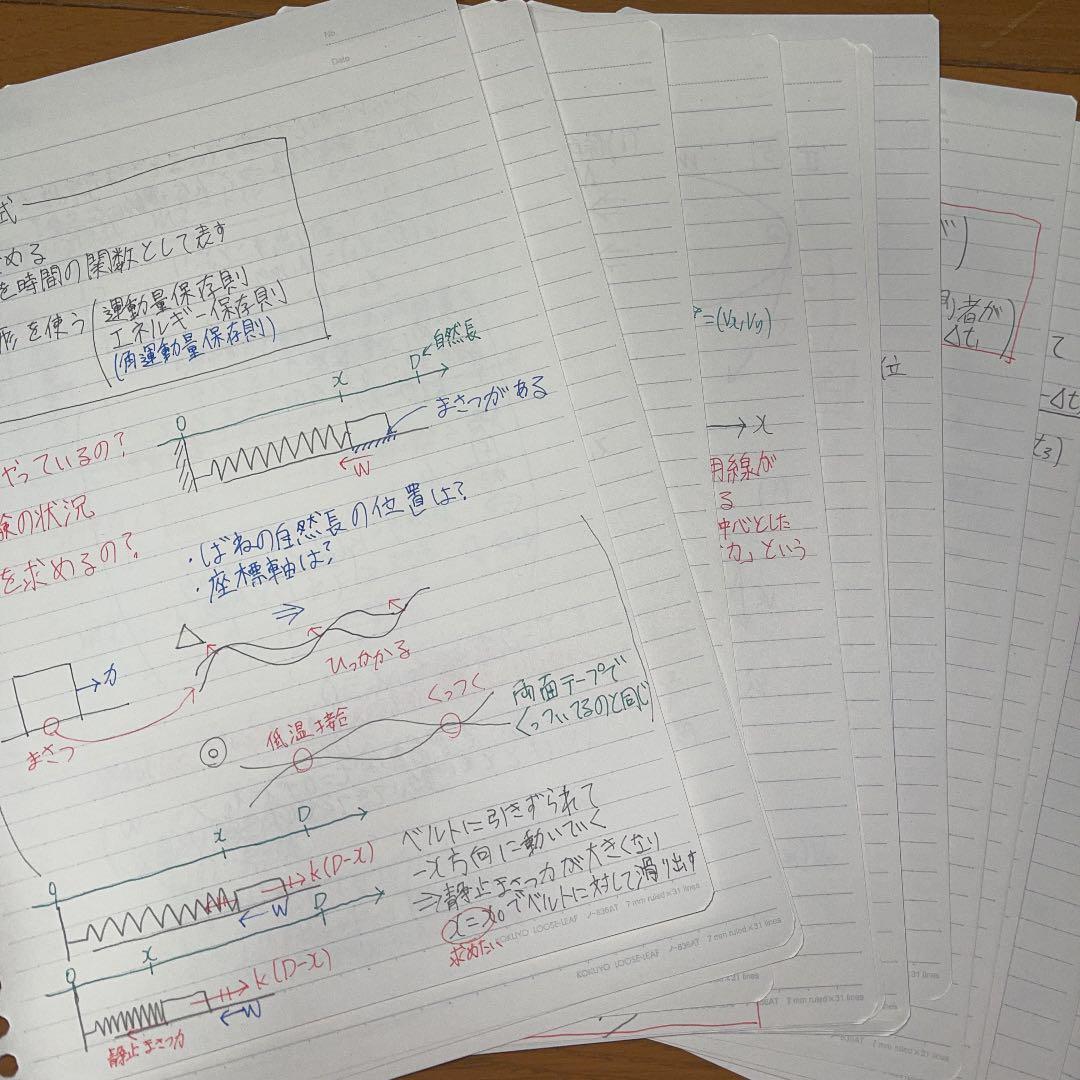 No.
Date
式
める
を時間の関数として表す
形を使う
(運動量保存則
エネルギー保存則
(角運動量保存則)
D←自然長
x
O
まさつがある
W
やっているの?
験の状況
を求めるの?
・ばねの自然長の位置は?
・座標軸は?
⇒
△
ひっかかる
力
まさつ
◎
低温接合
くっつく
両面テープで
くっついてるのと同じ
D
x
O
k(D-x)
W
ベルトに引きずられて
-x方向に動いていく
⇒静止まさつ力が大きくなり
x=x₀でベルトに対して滑り出す
求めたい
D
x
O
k(D-x)
W
静止まさつ力
KOKUYO LOOSE-LEAF ノ-836AT 7 mm ruled×31 lines
KOKUYO LOOSE-LEAF ノ-836AT 7 mm ruled×31 lines
=(Vx,Vy)
→x
用線が
る
中心とした
力」という
位
者が
Δt₁
て
-Δt
t₃)
836AT 7 mm ruled×31 lines
7 mm ruled×31 lines
-836AT 7 mm ruled×31 lines